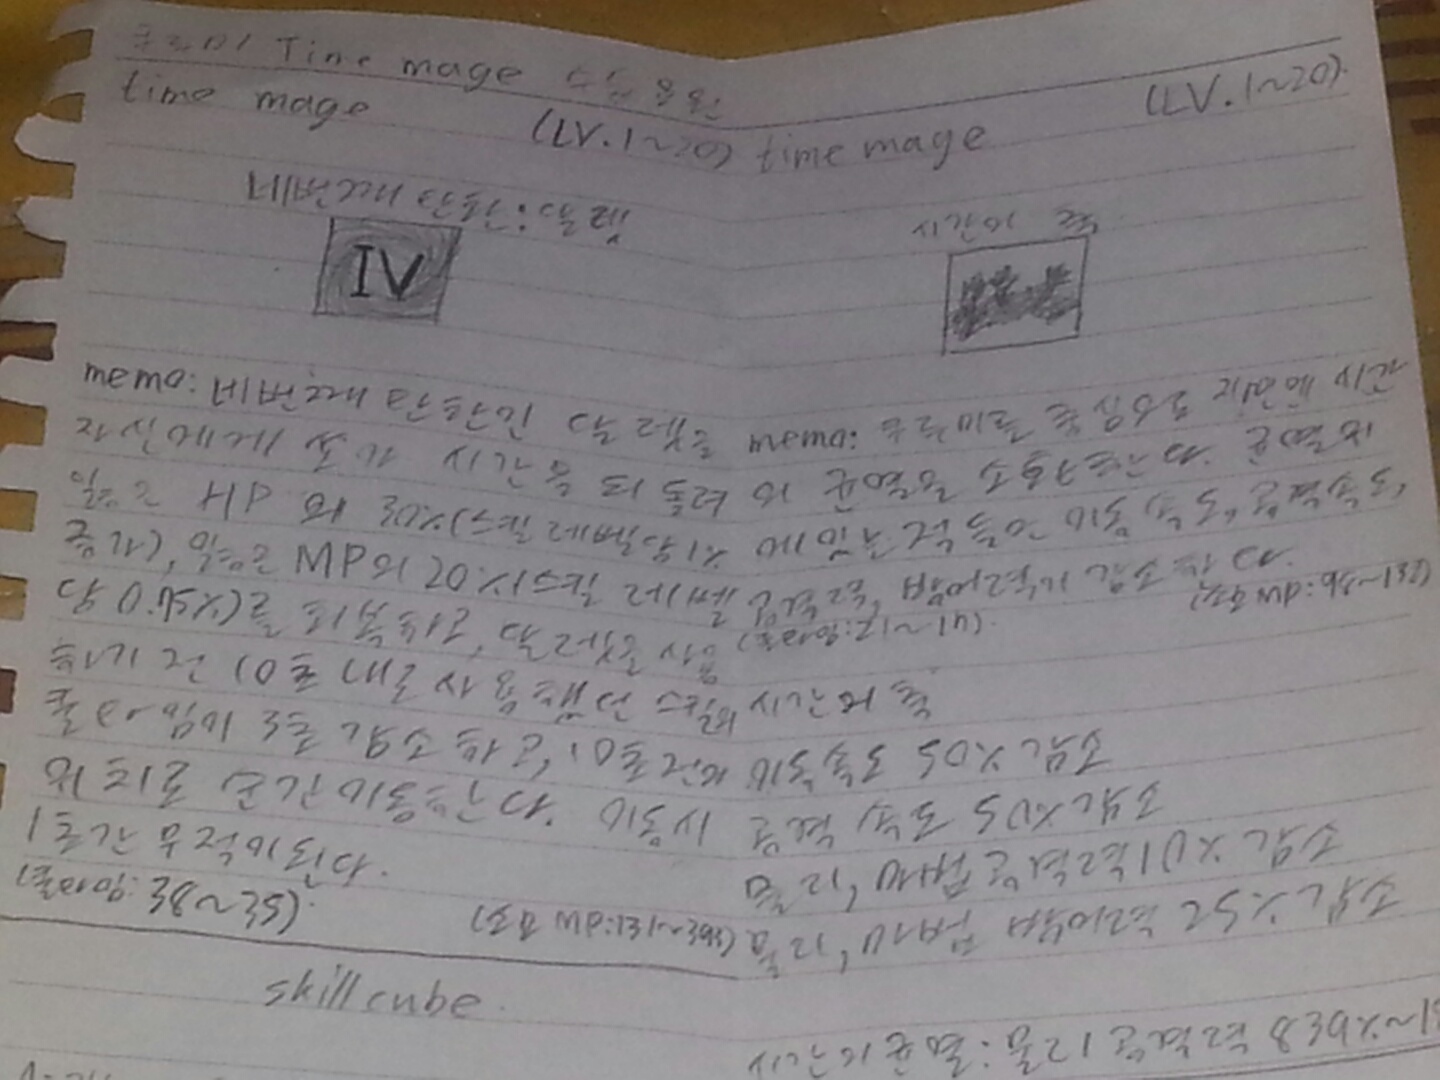 Time mage
time mage (LV.1~20)
네번째 탄환:달렛
IV
memo: 네번째 탄환인 달렛을
자신에게 쏘아 시간을 되돌려
잃은 HP의 30%(스킬레벨당1%
증가), 잃은 MP의 20%(스킬 레벨
당 0.75%)를 회복하고, 달렛을 사용
하기 전 10초 내로 사용했던 스킬의
쿨타임이 3초 감소하고, 10초전의
위치로 순간이동한다. 이동시
1초간 무적이된다.
(쿨타임:38~35). (소모MP:131~393)
skill cube.
time mage (LV.1~20).
시간의 축
memo: 쿠루미를 중심으로 지면에 시간
의 균열을 소환한다. 균열지
에있는 적들은 이동속도, 공격속도,
공격력, 방어력이 감소한다.
(쿨타임:21~17). (소모MP:98~132)
시간의 축
이동속도 50% 감소
공격 속도 50% 감소
물리, 마법 공격력10% 감소
물리, 마법 방어력 25% 감소
시간의균열:물리공격력 839%~